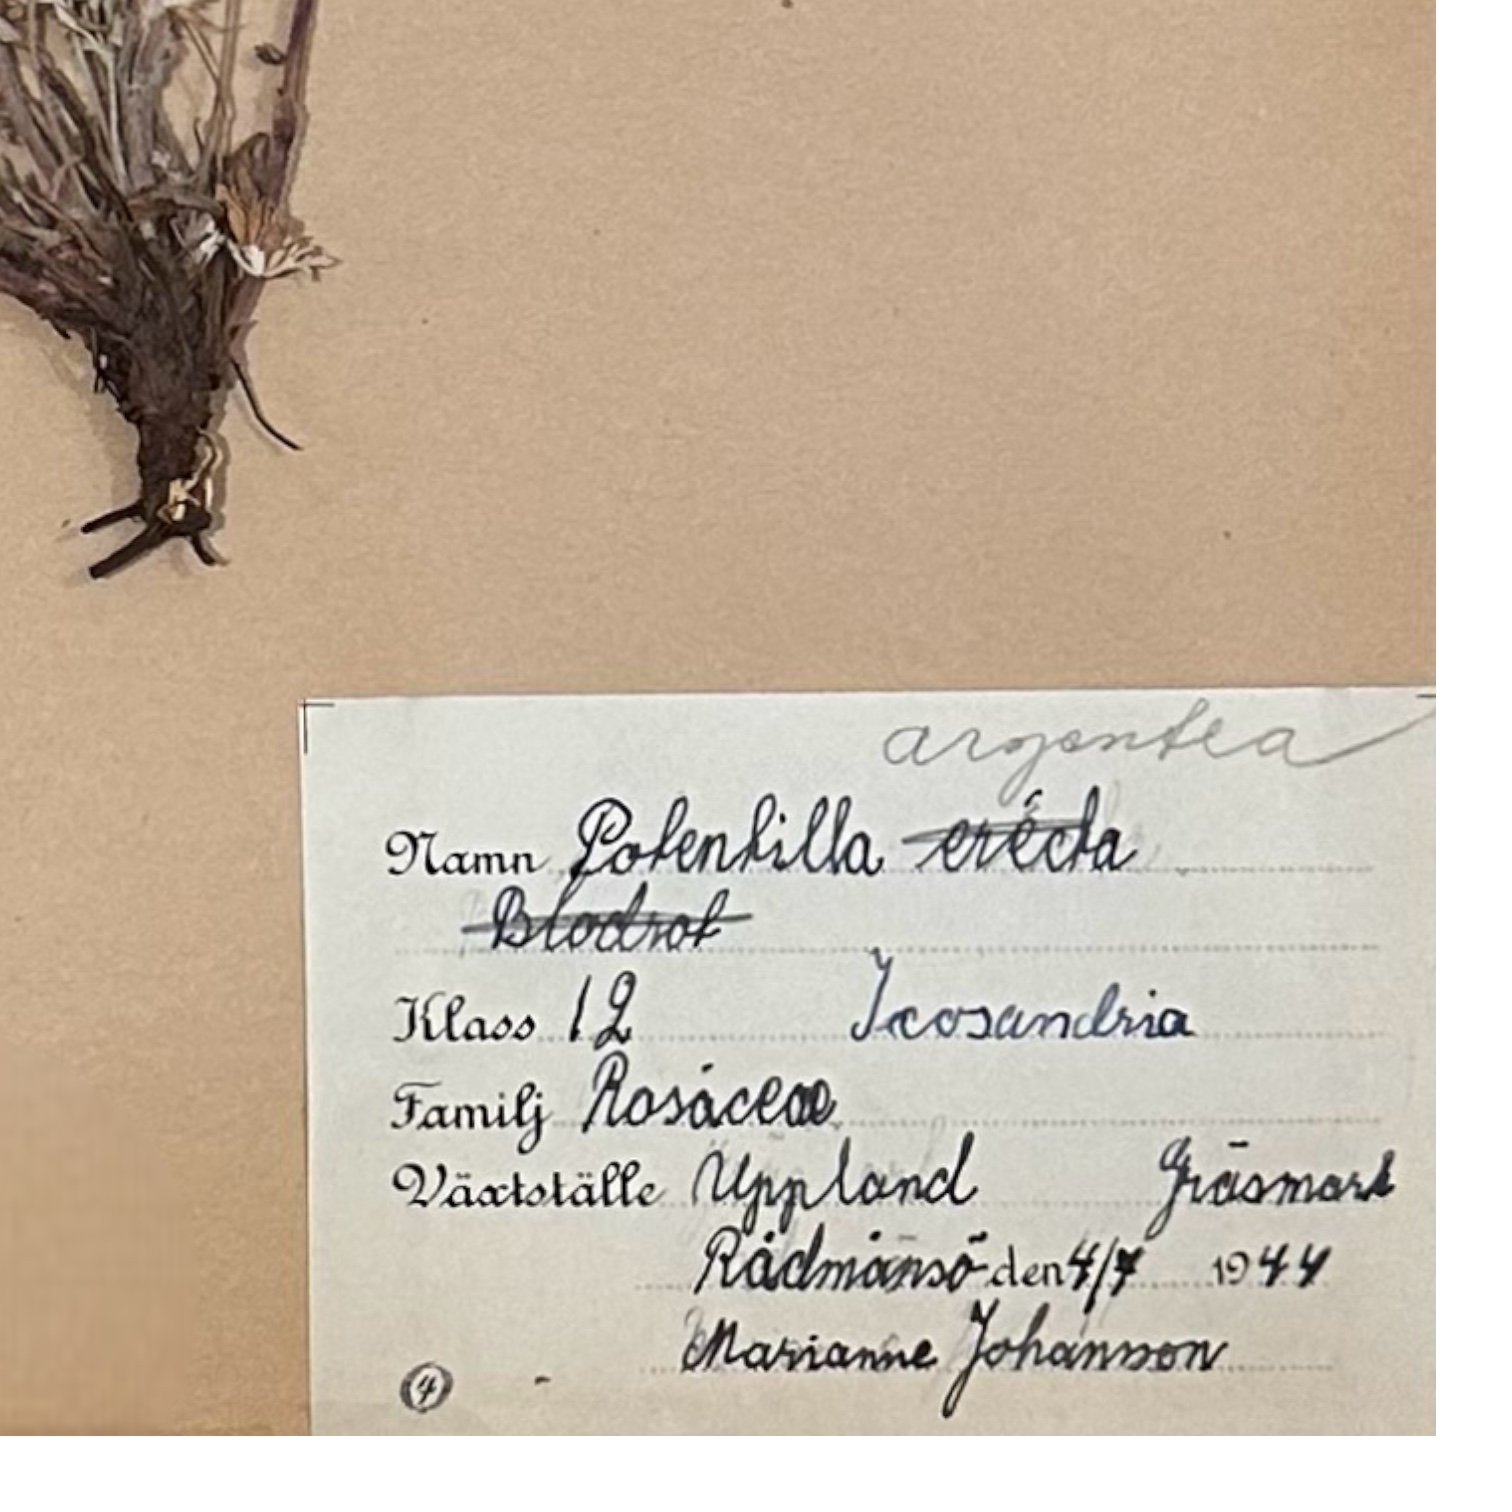 argentea
Namn Potentilla erécta
Blodrot
Klass 12 Icosandria
Familj Rosáceae
Växtställe Uppland Gräsmark
Rådmansö den 4/7 1944
Marianne Johansson
4